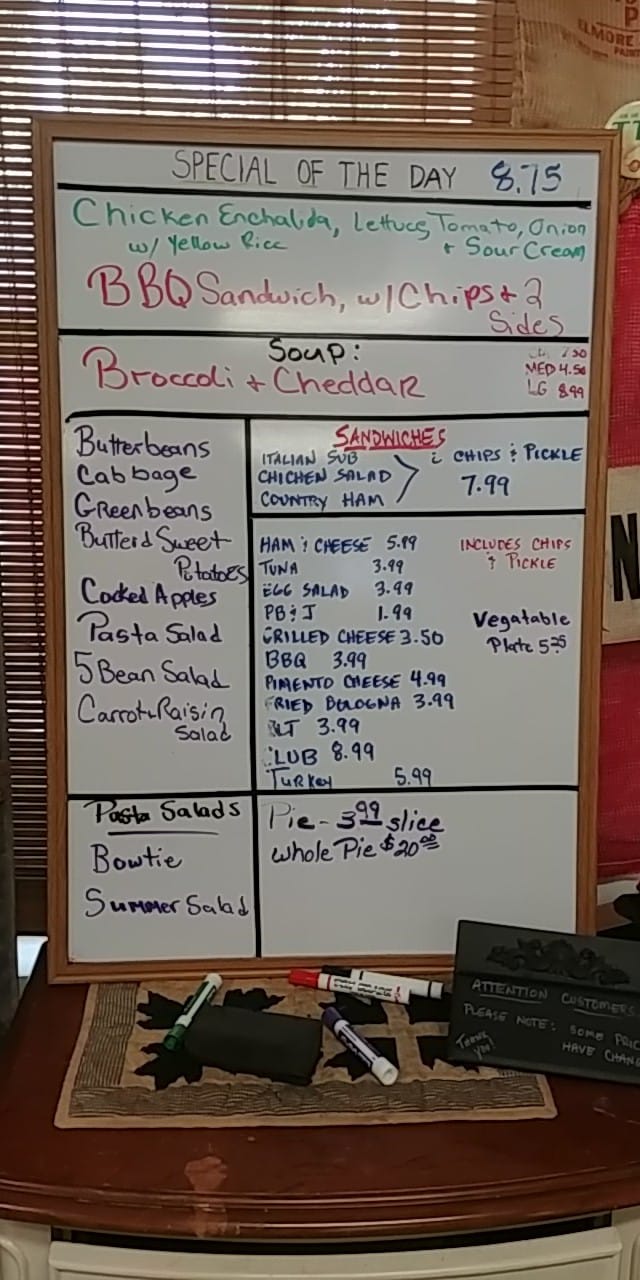 SPECIAL OF THE DAY 8.75
Chicken Enchalida, Lettuce, Tomato, Onion
w/ Yellow Rice + Sour Cream
BBQ Sandwich, w/ Chips + 2
Sides
Soup:
Broccoli + Cheddar
MED 4.50
LG 8.99
Butterbeans
Cabbage
Greenbeans
Butterd Sweet
Potatoes
Cooked Apples
Pasta Salad
5 Bean Salad
Carrot & Raisin
Salad
SANDWICHES
ITALIAN SUB
CHICHEN SALAD
COUNTRY HAM
CHIPS & PICKLE
7.99
HAM & CHEESE 5.99
TUNA 3.99
EGG SALAD 3.99
PB & J 1.99
GRILLED CHEESE 3.50
BBQ 3.99
PIMENTO CHEESE 4.99
FRIED BOLOGNA 3.99
BLT 3.99
CLUB 8.99
TURKEY 5.99
INCLUDES CHIPS
& PICKLE
Vegatable
Plate 5.25
Pasta Salads
Bowtie
Summer Salad
Pie - 3.99 slice
whole Pie $20.00
ATTENTION CUSTOMERS
PLEASE NOTE: SOME PRIC
HAVE CHAN
THANK
YOU!
ELMORE
N